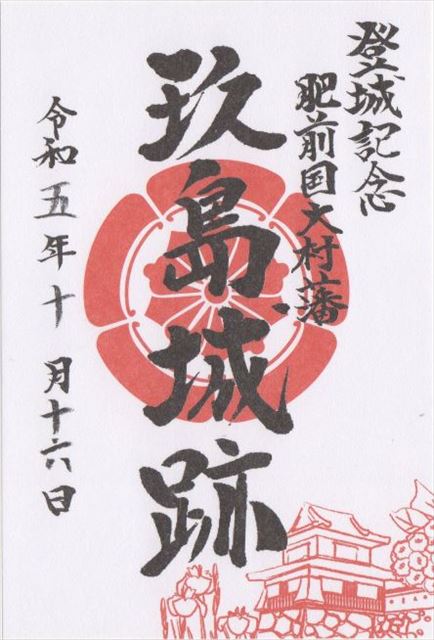 登城記念
肥前国大村藩
玖島城跡
令和五年十月十六日